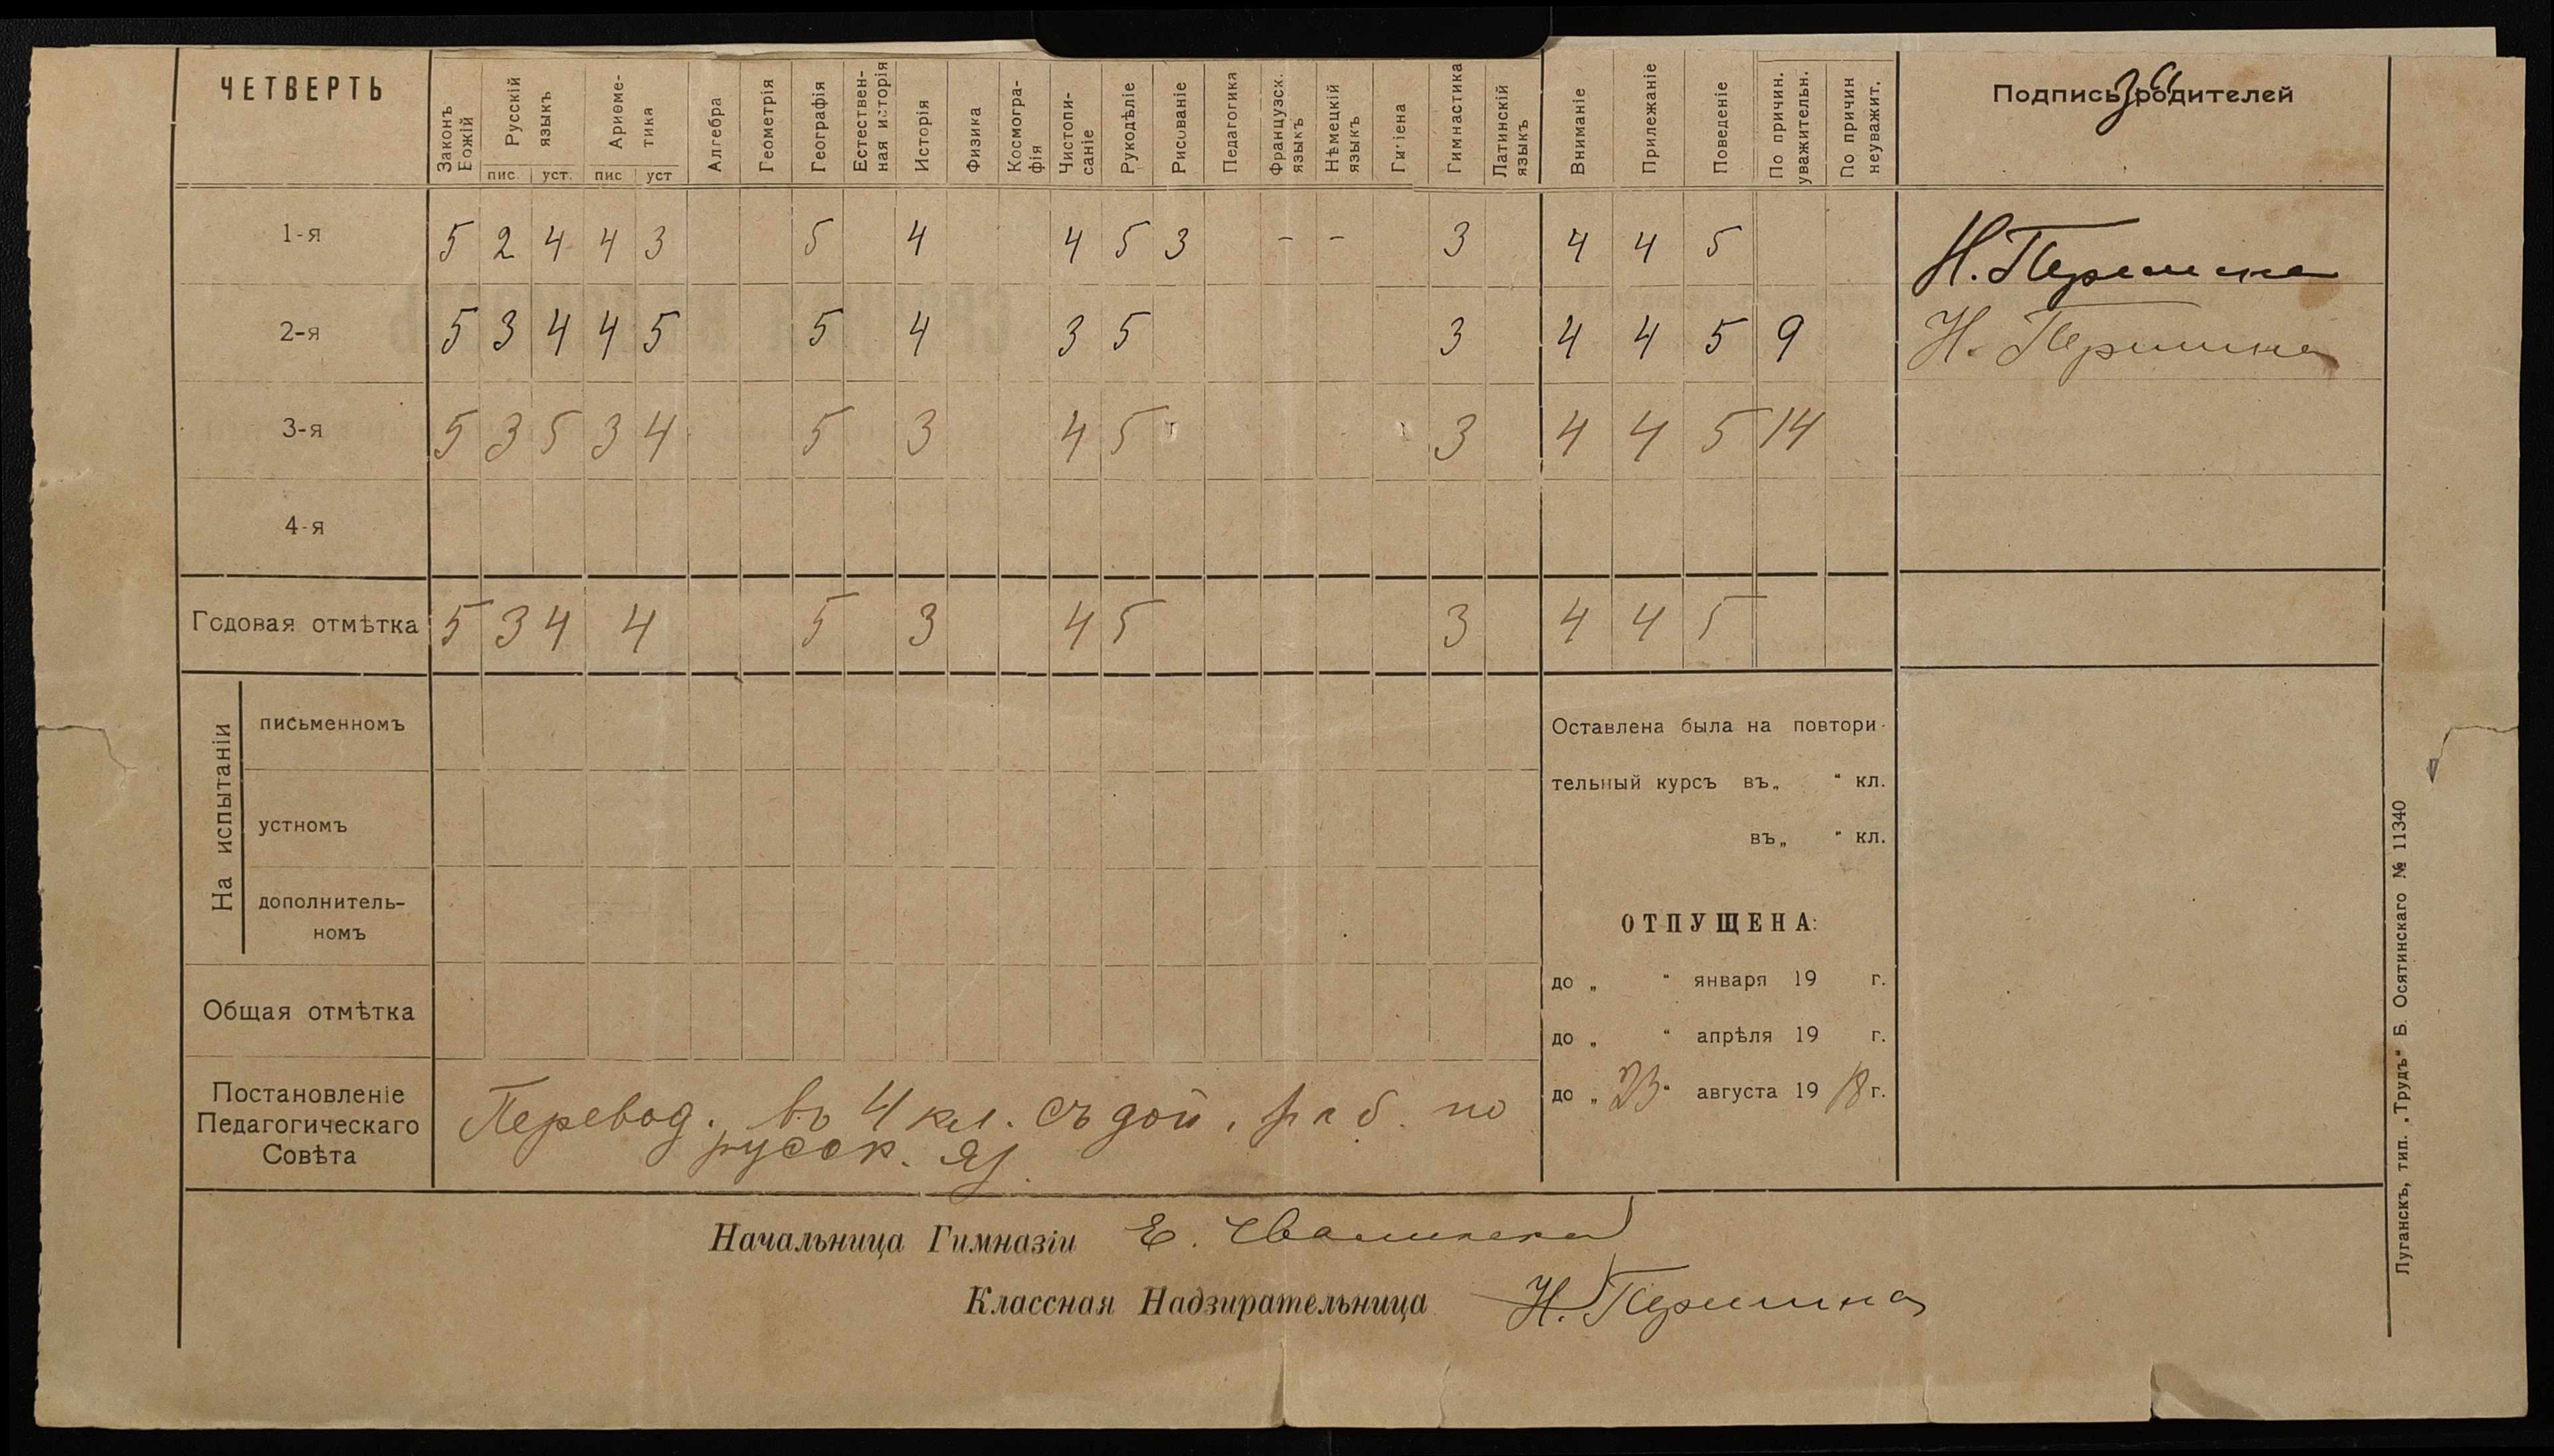 ЧЕТВЕРТЬ
Законъ Божій
Русскій языкъ
пис. уст.
Ариѳме-тика
пис уст
Алгебра
Геометрія
Географія
Естествен-ная исторія
Исторія
Физика
Космогра-фія
Чистопи-саніе
Рукодѣліе
Рисованіе
Педагогика
Французск. языкъ
Нѣмецкій языкъ
Гигіена
Гимнастика
Латинскій языкъ
Вниманіе
Прилежаніе
Поведеніе
По причин. уважительн.
По причин неуважит.
Подпись родителей
1-я 5 2 4 4 3 5 4 4 5 3 - - 3 4 4 5
2-я 5 3 4 4 5 5 4 3 5 3 4 4 5 9
3-я 5 3 5 3 4 5 3 4 5 3 4 4 5 14
4-я
Годовая отмѣтка 5 3 4 4 5 3 4 5 3 4 4 5
На испытаніи
письменномъ
устномъ
дополнитель-
номъ
Общая отмѣтка
Оставлена была на повтори-
тельный курсъ въ „ “ кл.
въ „ “ кл.
ОТПУЩЕНА:
до „ “ января 19 г.
до „ “ апрѣля 19 г.
до „ 23 “ августа 19 18 г.
Постановленіе
Педагогическаго
Совѣта
Перевод. въ 4 кл. съ доп. раб. по
русск. яз.
Начальница Гимназіи Е.
Классная Надзирательница Н.
Луганскъ, тип. „Трудъ“ Б. Осятинскаго № 11340